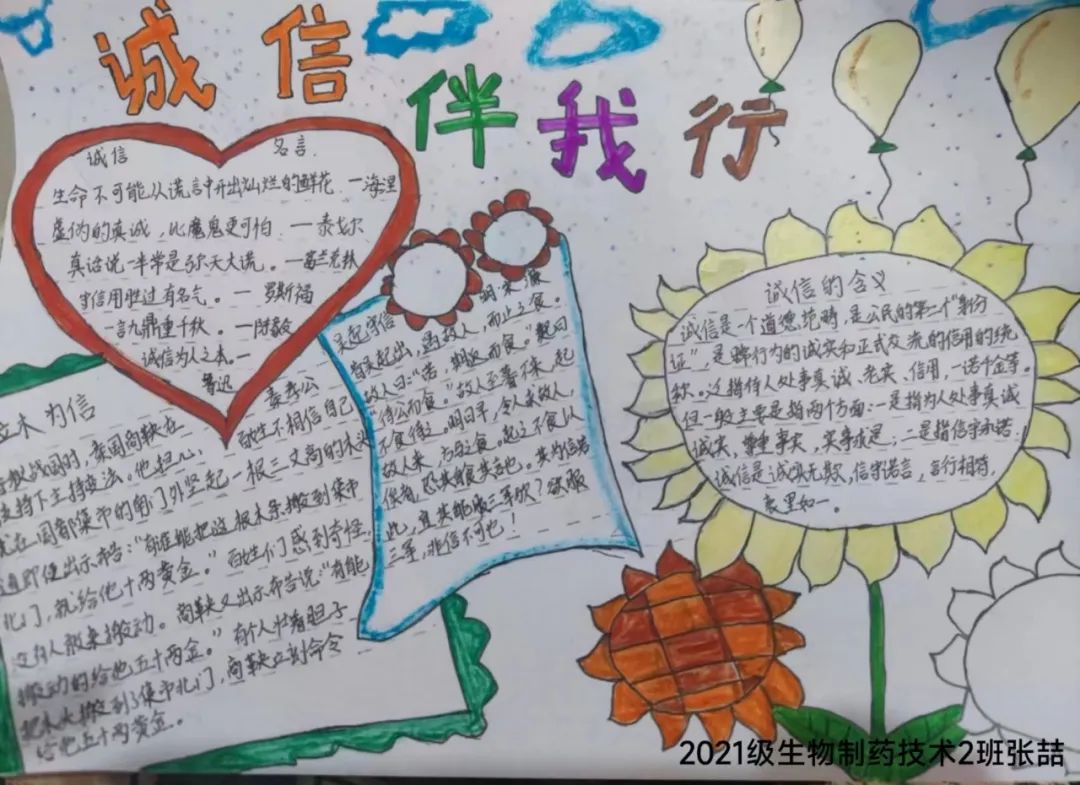 诚信伴我行
诚信 名言
生命不可能从谎言中开出灿烂的鲜花。一海涅
虚伪的真诚，比魔鬼更可怕。一泰戈尔
真话说一半常是弥天大谎。一富兰克林
守信用胜过有名气。一 罗斯福
一言九鼎重千秋。一陈毅
诚信为人之本。一
鲁迅
立木 为信
秦孝公
战国时，秦国商鞅在
支持下主持变法。他担心， 百姓不相信自己
就在国都集市的南门外竖起一根三丈高的木头
随即便出示布告："有谁能把这根木头搬到集市
北门，就给他十两黄金。"百姓们感到奇怪，
没有人敢来搬动。商鞅又出示布告说："有能
搬动的给他五十两金。"有个人壮着胆子
把木头搬到了集市北门，商鞅立刻命令
给他五十两黄金。
吴起守信 明 宋濂
昔吴起出，遇故人，而止之食。
故人曰："诺，期返而食。"起曰
"待公而食。"故人至暮不来，起
不食待之。明日早，令人求故人，
故人来，方与之食。起之不食以
俟者，恐其自食其言也。其为信若
此，宜其能服三军欤？欲服
三军，非信不可也！
诚信的含义
诚信是一个道德范畴，是公民的第二个"身份
证"，是 行为的诚实和正式交流的信用的统
称。泛指待人处事真诚、老实、信用，一诺千金等。
但一般主要是指两个方面：一是指为人处事真诚
诚实，尊重事实，实事求是；二是指信守承诺。
诚信是诚实无欺，信守诺言，言行相符，
表里如一。
2021级生物制药技术2班张喆